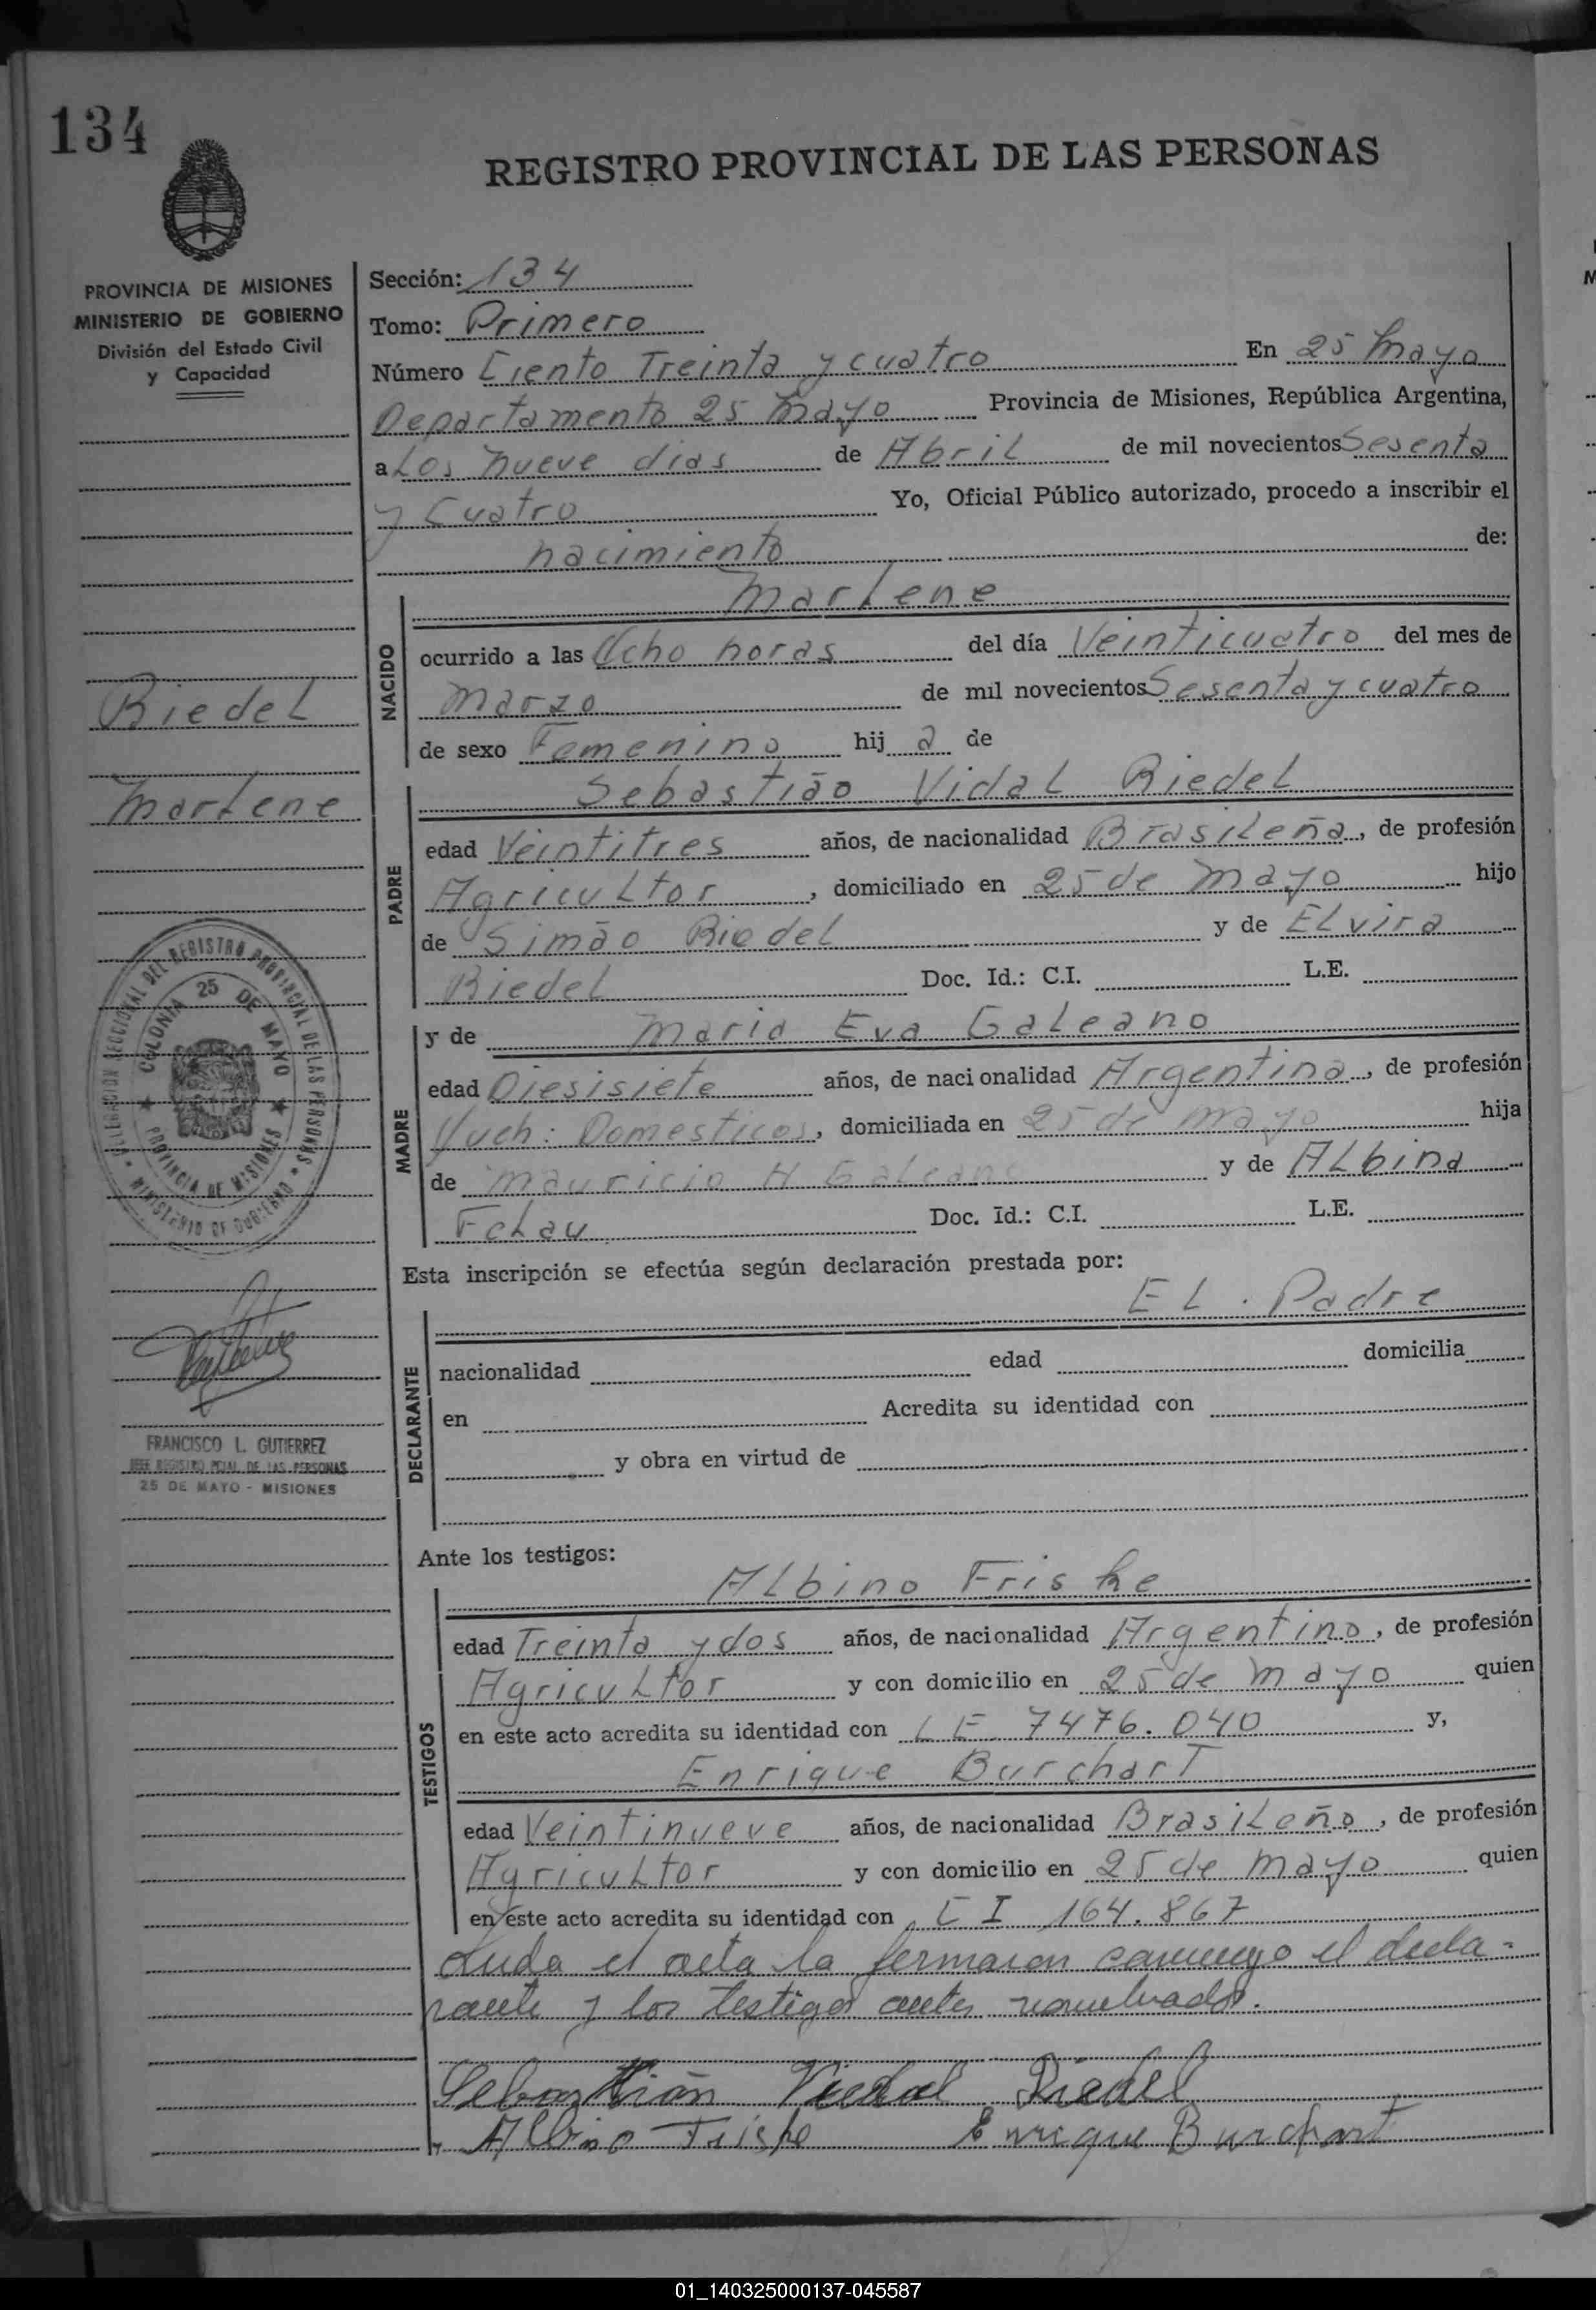 134
REGISTRO PROVINCIAL DE LAS PERSONAS
PROVINCIA DE MISIONES
MINISTERIO DE GOBIERNO
División del Estado Civil
y Capacidad
Sección: 134
Tomo: Primero
Número Ciento Treinta y cuatro En 25 Mayo
Departamento 25 Mayo Provincia de Misiones, República Argentina,
a Los nueve dias de Abril de mil novecientos Sesenta
y Cuatro Yo, Oficial Público autorizado, procedo a inscribir el
nacimiento de:
Marlene
NACIDO
ocurrido a las Ocho horas del día Veinticuatro del mes de
Marzo de mil novecientos Sesenta y cuatro
de sexo Femenino hij a de
Riedel
Marlene
Sebastião Vidal Riedel
PADRE
edad Veintitres años, de nacionalidad Brasileña, de profesión
Agricultor, domiciliado en 25 de Mayo hijo
de Simão Riedel y de Elvira
Riedel Doc. Id.: C.I. L.E.
y de Maria Eva Galeano
MADRE
edad Diesisiete años, de nacionalidad Argentina, de profesión
Domesticos, domiciliada en 25 de Mayo hija
de Mauricio H Galeano y de Albina
Doc. Id.: C.I. L.E.
DELEGACION SECCIONAL DEL REGISTRO PROVINCIAL DE LAS PERSONAS
COLONIA 25 DE MAYO
PROVINCIA DE MISIONES
MINISTERIO DE GOBIERNO
Esta inscripción se efectúa según declaración prestada por:
El Padre
DECLARANTE
nacionalidad edad domicilia
en Acredita su identidad con
y obra en virtud de
FRANCISCO L. GUTIERREZ
JEFE REGISTRO PCIAL DE LAS PERSONAS
25 DE MAYO - MISIONES
Ante los testigos:
Albino Friske
TESTIGOS
edad Treinta y dos años, de nacionalidad Argentino, de profesión
Agricultor y con domicilio en 25 de Mayo quien
en este acto acredita su identidad con LE 7476.040 y,
Enrique Burchart
edad Veintinueve años, de nacionalidad Brasileño, de profesión
Agricultor y con domicilio en 25 de Mayo quien
en este acto acredita su identidad con CI 164.867
el acta la firmaron conmigo el decla-
rante y los testigos antes nombrados.
Sebastián Viedal Riedel
Albino Friske Enrique Burchart
01_140325000137-045587